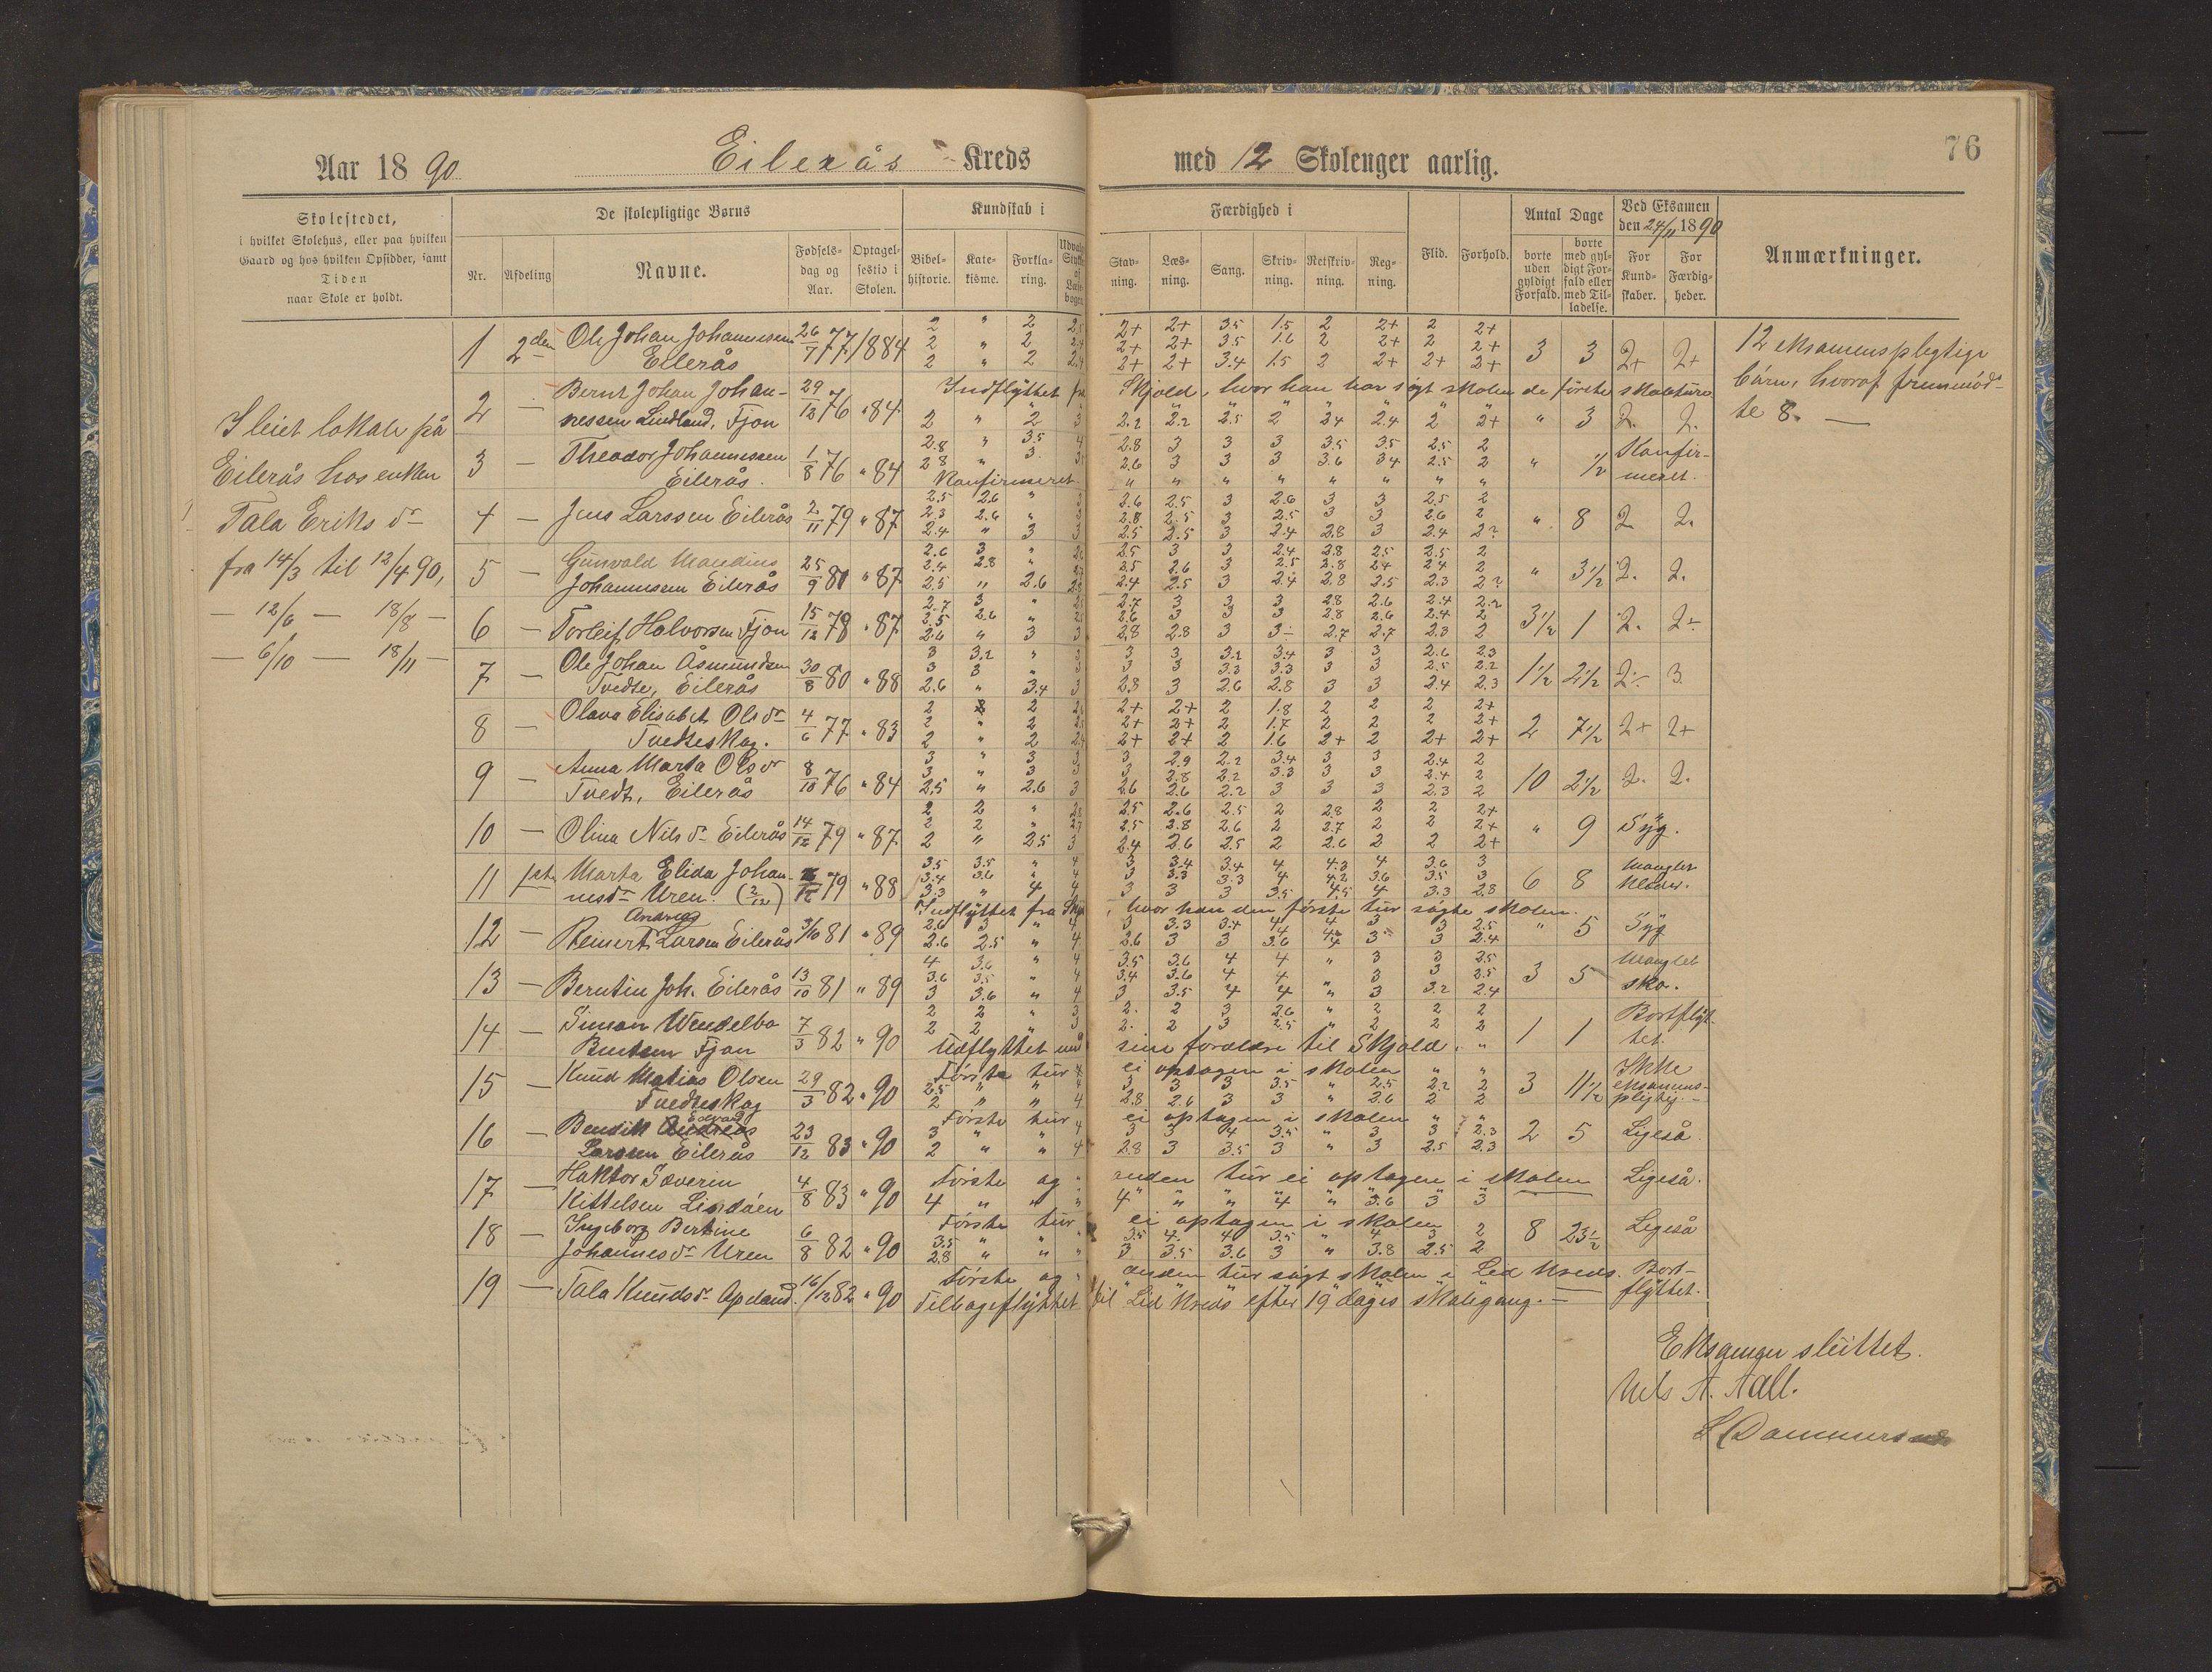 76
Aar 1890 Eilerås Kreds med 12 Skolenger aarlig.
Skolestedet,
i hvilket Skolehus, eller paa hvilken
Gaard og hos hvilken Opsidder, samt
Tiden
naar Skole er holdt.
De skolepligtige Børns
Nr. Afdeling Navne. Fødsels-dag og Aar. Optagelsestid i Skolen.
Kundskab i
Bibelhistorie. Katekisme. Forklaring. Udvalgte Stykker af Læsebogen
Færdighed i
Stavning. Læsning. Sang. Skrivning. Retskrivning. Regning. Flid. Forhold.
Antal Dage
borte uden gyldigt Forfald. borte med gyldigt Forfald eller med Tilladelse.
Ved Eksamen den 24/11 1890
For Kundskaber. For Færdigheder.
Anmærkninger.
I leiet lokale på
Eilerås hos enken
Tala Eriks dr
fra 14/3 til 12/4 90,
— 12/6 — 18/8 —
— 6/10 — 18/11 —
1 2den Ole Johan Johannesen Eilerås 26/7 77 1884
2 " 2 2.5 2+ 2+ 3.5 1.5 2 2+ 2 2+
2 " 2 2.4 2+ 2+ 3.5 1.6 2 2+ 2 2+
2 " 2 2.4 2+ 2+ 3.4 1.5 2 2+ 2+ 2+ 3 3 2+ 2+
12 eksamenspligtige
børn, hvoraf fremmød-
te 8. —
2 — Bernt Johan Johannessen Lindland, Fjon 29/12 76 " 84
Indflyttet fra Skjold, hvor han har søgt skolen de første skoleture
2 " 2 3 2.2 2.2 2.5 2 2.4 2.4 2 2+ " 3 2. 2.
3 — Theodor Johannessen Eilerås. 1/8 76 " 84
2.8 " 3.5 4 2.8 3 3 3 3.5 3.5 2.5 2
2.8 " 3. 3.5 2.6 3 3 3 3.6 3.4 2.5 2 " 1/2 Konfirmeret.
Konfirmeret. " " " " " " " "
4 — Jens Larssen Eilerås 2/11 79 " 87
2.5 2.6 " 3 2.6 2.5 3 2.6 3 3 2.5 2
2.3 2.6 " 3 2.8 2.5 3 2.5 3 3 2.6 2
2.4 " 3 3 2.5 2.5 3 2.4 2.8 3 2.4 2? " 8 2. 2.
5 — Gunvald Mandius Johannesen Eilerås 25/9 80 " 87
2.6 3 " 2.6 2.5 3 3 2.4 2.8 2.5 2.5 2
2.4 2.8 " 2.7 2.5 2.6 3 2.5 2.8 2+ 2.4 2
2.5 " 2.6 2.8 2.4 2.5 3 2.4 2.8 2.5 2.3 2? " 3 1/2 2. 2.
6 — Torleif Halvorsen Fjon 15/12 78 " 87
2.7 3 " 2.7 3 3 3 2.8 2.6 2.4 2.2
2.5 2.6 " 2.6 3 3 3 2.8 2.6 2.4 2
2.6 " 3 3 2.8 2.8 3 3÷ 2.7 2.7 2.3 2 3 1/2 1 2. 2÷
7 — Ole Johan Åsmundsen Tvedte, Eilerås 30/8 80 " 88
3 3.2 " 3 3 3 3.2 3.4 3 3 2.6 2.3
3 3 " 3 3 3 3.3 3.3 3 3 2.5 2.2
2.6 " 3.4 3 2.8 3 2.6 2.8 3 3 2.4 2.3 1 1/2 2 1/2 2÷ 3
8 — Olava Elisabet Ols dr Tvedteskog. 4/6 77 " 83
2 2 2+ 2+ 2 1.8 2 2 2 2+
2 " 2 2.5 2+ 2+ 2 1.7 2 2 2 2+
2 " 2 2.4 2+ 2+ 2 1.6 2+ 2 2+ 2+ 2 7 1/2 2+ 2+
9 — Anna Marta Ols dr Tvedt, Eilerås 8/10 76 " 84
3 " 3 3 3 2.9 2.2 3.4 3 3 2.4 2
3 " 3 3 3 2.8 2.2 3.3 3 3 2.4 2
2.5 " 2.6 3 2.6 2.6 2.2 3 3 3 2.3 2 10 2 1/2 2. 2.
10 — Olina Nils dr Eilerås 14/12 79 " 87
2 2 " 2.8 2.5 2.6 2.5 2 2.8 2 2 2+
2 2 " 2.7 2.5 2.8 2.6 2 2.7 2 2 2+
2 " 2.5 3 2.4 2.6 2.5 2 2.6 2 2 2+ " 9 Syg.
11 1ste Marta Elida Johannesdr Uren. (2/12) 79 " 88
3.5 3.5 " 4 3 3.4 3.4 4 4.3 4 3.6 3
3.4 3.6 " 4 3 3.3 3.3 4 4.2 3.6 3.5 3
3.3 " 4 4 3 3 3 3.5 4.5 4 3.3 2.8 6 8 Mangler klæder.
12 — Reinert Andreas Larsen Eilerås 3/10 81 " 89
Indflyttet fra Skj, hvor han den første tur søgte skolen.
2.6 3 " 4 3 3.3 3.4 4 4 3 3 2.5
2.6 2.5 " 4 2.6 3 3 3.6 4 3 3 2.4 " 5 Syg
13 — Berntin Joh. Eilerås 13/10 81 " 89
4 3.6 " 4 3.5 3.6 4 4 " 3 3 2.5
3.6 3.5 " 4 3.4 3.6 4 4 " 3 3 2.5
3 3.6 " 4 3 3.5 4 4 " 3 3.2 2.4 3 5 Manglet sko.
14 — Simon Wendelbo Bentsen Fjon 7/3 82 " 90
2 2 " 3 2. 2 3 2.6 " 2 2 2
2 2 " 3 2. 2 3 2.5 " 2 2 2 1 1 Bortflyttet.
Udflyttet med sine forældre til Skjold. "
15 — Knud Matias Olsen Tvedteskog 29/3 82 " 90
Første tur ei optagen i skolen " "
2.5 " " 4 3 3 3 3.5 " 2.5 2.2 2
2 " " 4 2.8 2.6 3 3 " 2.6 2 2 3 11 1/2 Ikke eksamenspligtig. —
16 — Bendik Edvard Larssen Eilerås 23/12 83 " 90
Første tur ei optagen i skolen " "
3 " " 4 3 3 4 3.5 " 3 3 2.3
2 " " 4 2.8 3 3.5 3 " 3 2.5 2.3 2 5 Ligeså.
17 — Haktor Severin Kittelsen Lindåen 4/8 83 " 90
Første og anden tur ei optagen i skolen
4 " " " 4 " " 4 " 3.6 3 3 Ligeså.
18 — Ingeborg Bertine Johannesdr Uren 6/8 82 " 90
Første tur ei optagen i skolen
3.5 " " " 3.5 4 4 3.5 " 4 3 2
2.8 " " " 3 3.5 3.6 3 " 3.8 2.5 2 8 23 1/2 Ligeså
19 — Tala Knuds dr Apeland 16/12 82 " 90
Første og anden tur søgt skolen i Lid kreds.
Tilbageflyttet til Lid kreds efter 19 dages skolegang. — Bortflyttet.
Eksamen sluttet.
Nels A. Aall.